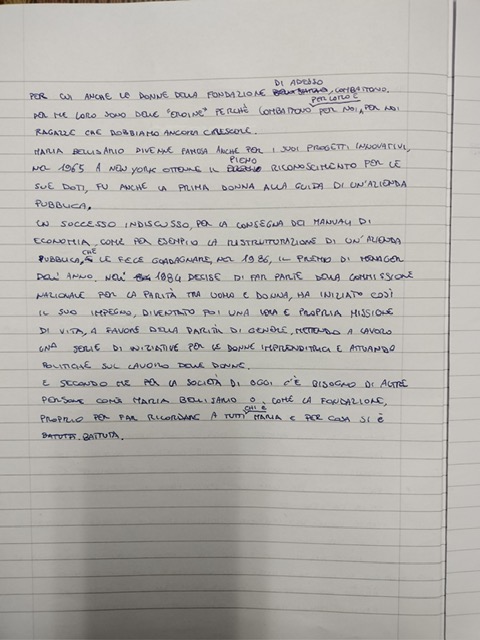 PER CUI ANCHE LE DONNE DELLA FONDAZIONE DI ADESSO, COMBATTONO.
PER ME LORO SONO DELLE "EROINE" PERCHÈ COMBATTONO PER LORO E PER NOI, PER NOI
RAGAZZE CHE DOBBIAMO ANCORA CRESCERE.
MARIA BELLISARIO DIVENNE FAMOSA ANCHE PER I SUOI PROGETTI INNOVATIVI,
NEL 1965 A NEW YORK OTTENNE IL PIENO RICONOSCIMENTO PER LE
SUE DOTI, FU ANCHE LA PRIMA DONNA ALLA GUIDA DI UN'AZIENDA
PUBBLICA.
UN SUCCESSO INDISCUSSO, PER LA CONSEGNA DEI MANUALI DI
ECONOMIA, COME PER ESEMPIO LA RISTRUTTURAZIONE DI UN'AZIENDA
PUBBLICA, CHE LE FECE GUADAGNARE, NEL 1986, IL PREMIO DI MANAGER
DELL'ANNO. NELL' 1984 DECISE DI FAR PARTE DELLA COMMISSIONE
NAZIONALE PER LA PARITÀ TRA UOMO E DONNA, HA INIZIATO COSÌ
IL SUO IMPEGNO, DIVENTATO POI UNA VERA E PROPRIA MISSIONE
DI VITA, A FAVORE DELLA PARITÀ DI GENERE, METTENDO A LAVORO
UNA SERIE DI INIZIATIVE PER LE DONNE IMPRENDITRICI E ATTUANDO
POLITICHE SUL LAVORO DELLE DONNE.
E SECONDO ME PER LA SOCIETÀ DI OGGI C'È BISOGNO DI ALTRE
PERSONE COME MARIA BELLISARIO O COME LA FONDAZIONE,
PROPRIO PER FAR RICORDARE A TUTTI CHI È MARIA E PER COSA SI È
BATTUTA.